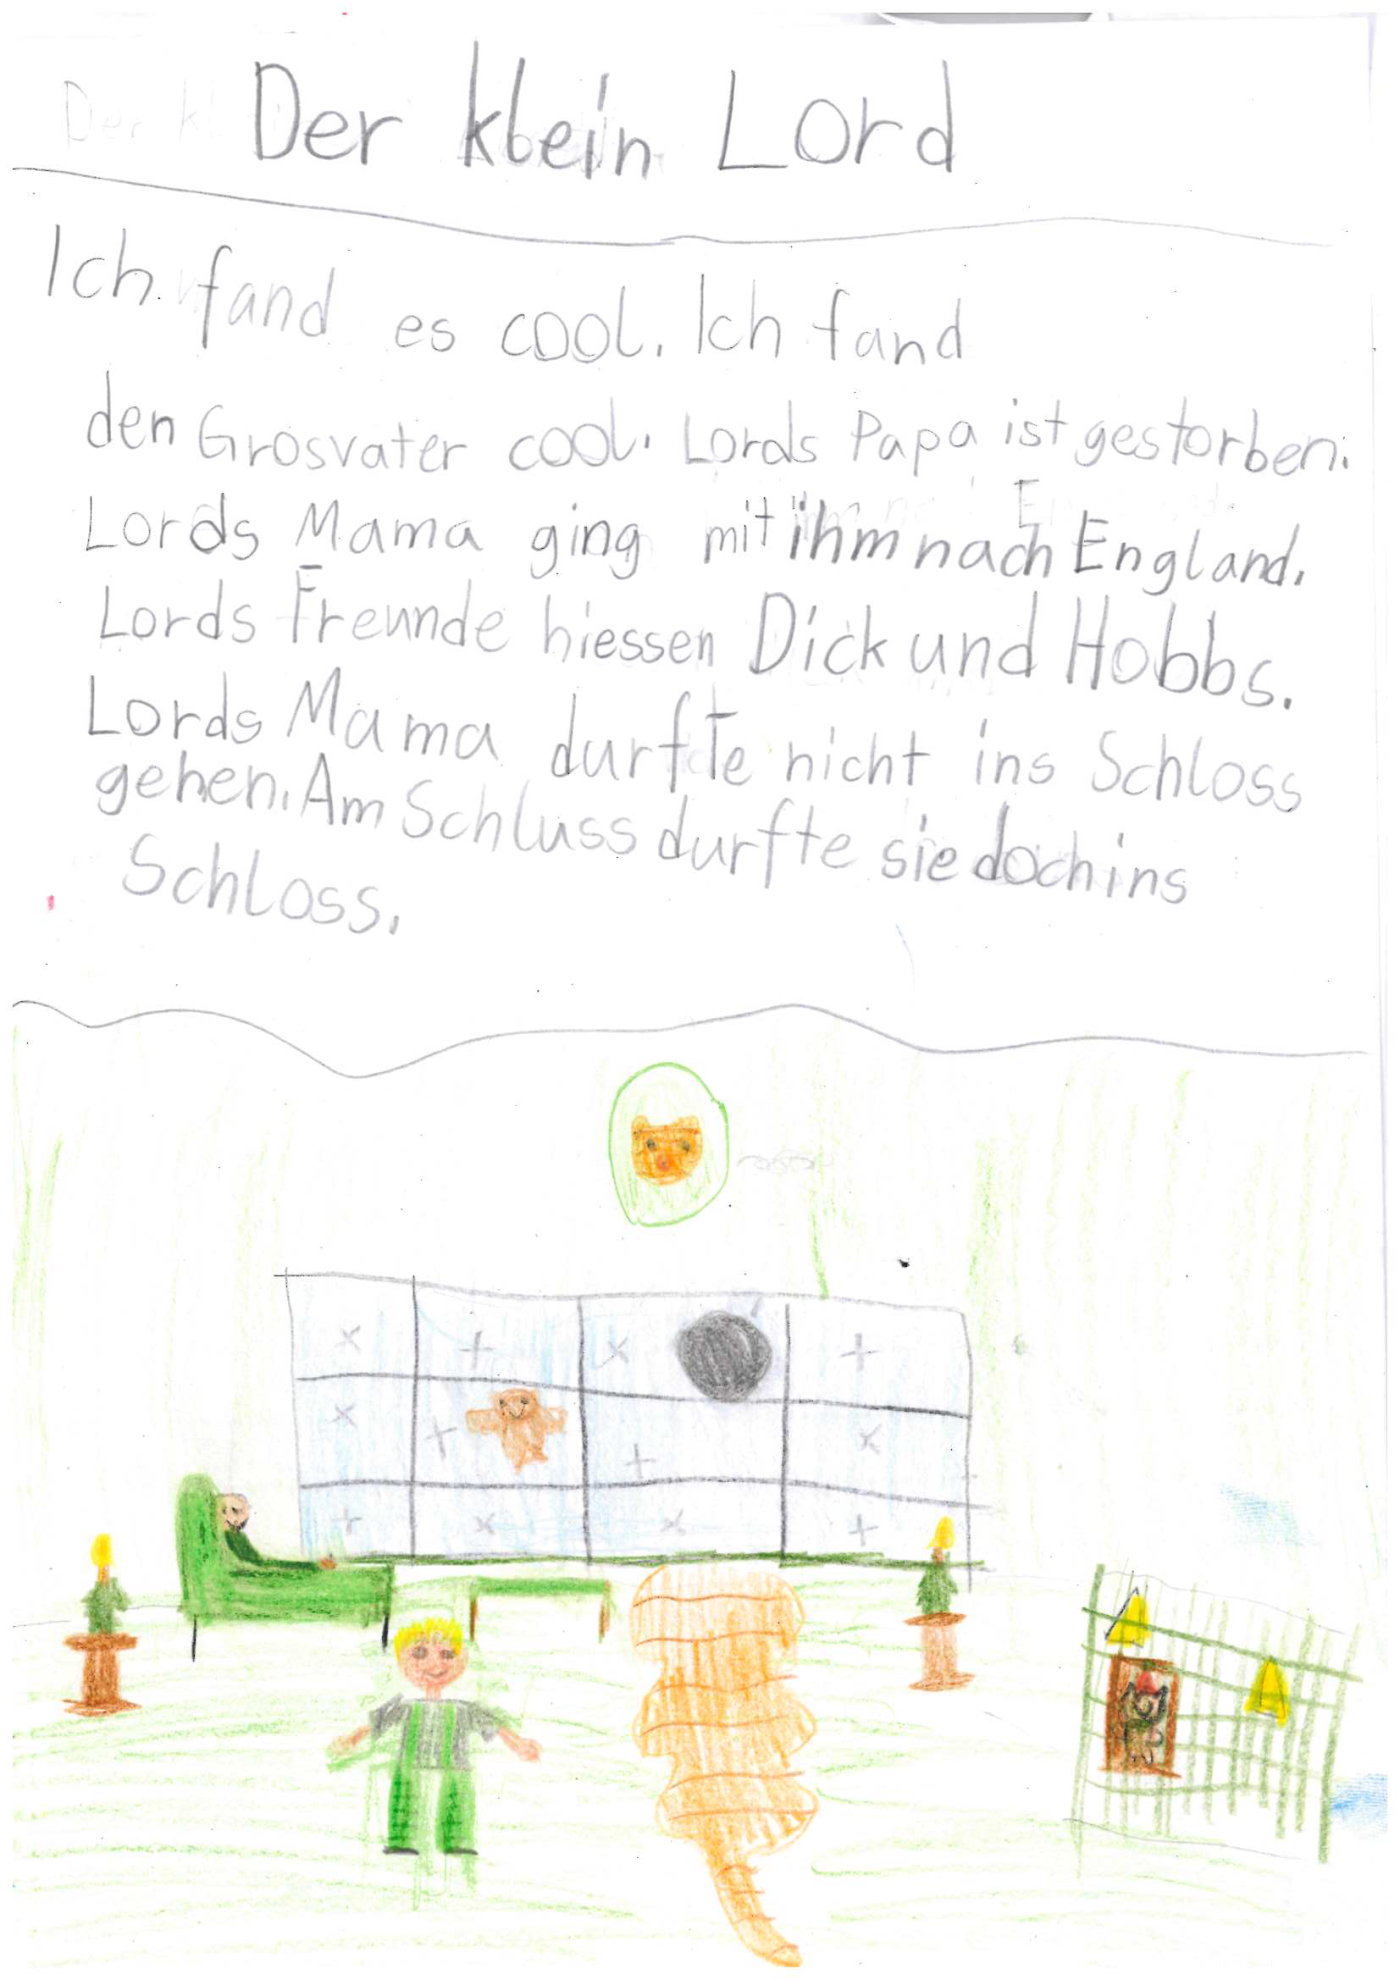 Der klein Lord
Ich fand es cool. Ich fand
den Grosvater cool. Lords Papa ist gestorben.
Lords Mama ging mit ihm nach England.
Lords Freunde hiessen Dick und Hobbs.
Lords Mama durfte nicht ins Schloss
gehen. Am Schluss durfte sie doch ins
Schloss.